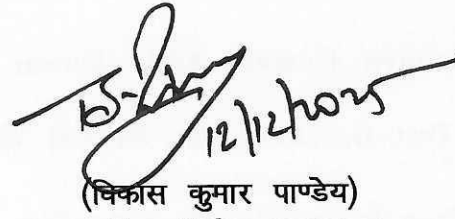 12/12/2025
(विकास कुमार पाण्डेय)